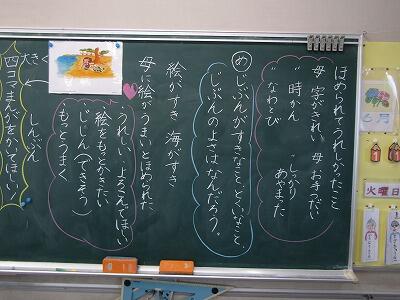 ほめられてうれしかったこと
母 字がきれい 母 お手つだい
〃 時かん
〃 なわとび
しっかり
あやまった
め じぶんがすきなこと、とくいなこと、
じぶんのよさはなんだろう。
絵がすき 海がすき
母に絵がうまいとほめられた
うれしい…よろんでほしい
絵をもっとかきたい
じしん(できそう)
もっとうまく
大き
しんぶん
四コマまんがをかいてほしい
6月
火曜日